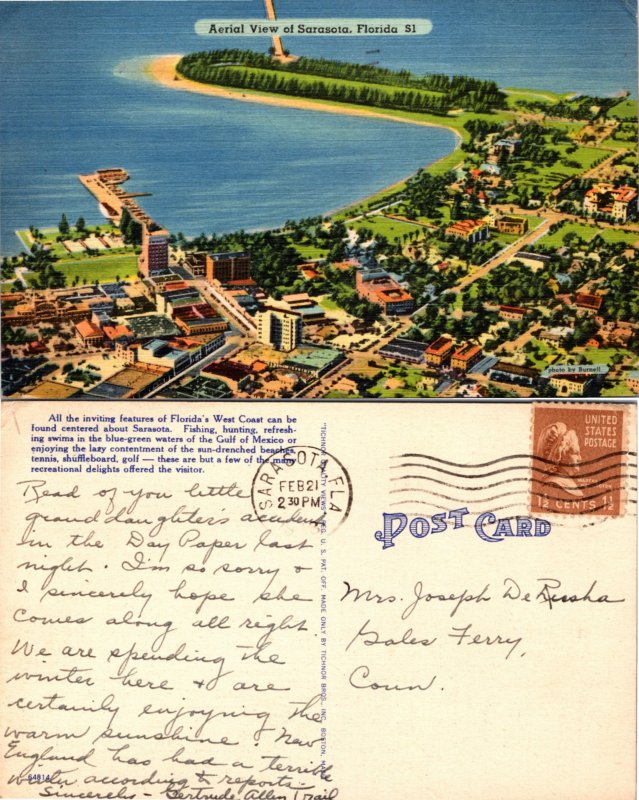 Aerial View of Sarasota, Florida S1
photo by Burnell
All the inviting features of Florida's West Coast can be
found centered about Sarasota. Fishing, hunting, refresh-
ing swims in the blue-green waters of the Gulf of Mexico or
enjoying the lazy contentment of the sun-drenched beaches,
tennis, shuffleboard, golf — these are but a few of the many
recreational delights offered the visitor.
Read of you little
granddaughter's accident
in the Day Paper last
night. I'm so sorry &
I sincerely hope she
comes along all right.
We are spending the
winter here & are
certainly enjoying the
warm sunshine. New
England has had a terrible
winter according to reports.
Sincerely - Gertrude Allen Trail
64814
"TICHNOR QUALITY VIEWS," REG. U. S. PAT. OFF. MADE ONLY BY TICHNOR BROS., INC., BOSTON, MASS.
SARASOTA, FLA.
FEB 21
2 30 PM
UNITED
STATES
POSTAGE
1½ CENTS 1½
POST CARD
Mrs. Joseph DeRusha
Gales Ferry,
Conn.